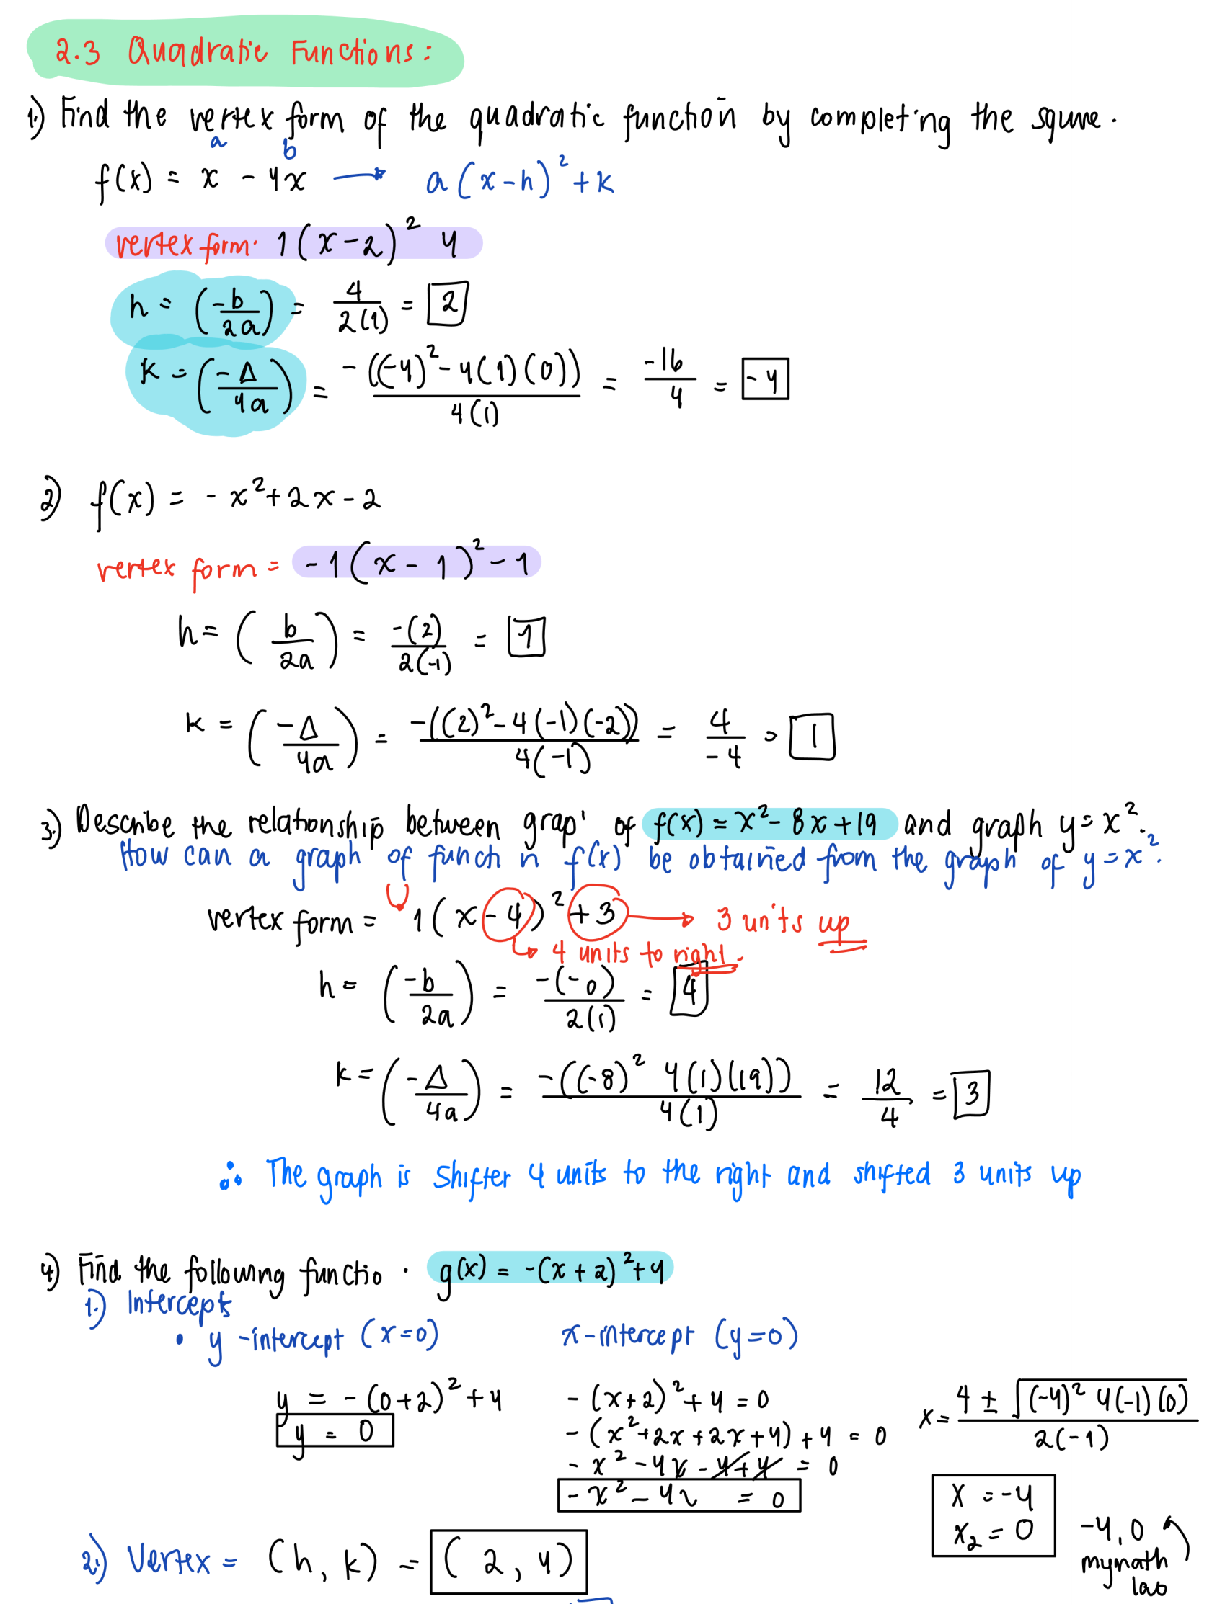 2.3 Quadratic Functions:
1.) Find the vertex form of the quadratic function by completing the square.
a b
f(x) = x - 4x → a(x-h)² + k
vertex form: 1(x-2)² 4
h = (-b/2a) = 4/2(1) = 2
k = (-Δ/4a) = -((-4)² - 4(1)(0))/4(1) = -16/4 = -4
2) f(x) = -x² + 2x - 2
vertex form = -1(x - 1)² - 1
h = (b/2a) = -(2)/2(-1) = 1
k = (-Δ/4a) = -((2)² - 4(-1)(-2))/4(-1) = 4/-4 = 1
3.) Describe the relationship between grap' of f(x) = x² - 8x + 19 and graph y = x².
How can a graph of funct n f(x) be obtained from the graph of y = x².
vertex form = 1(x - 4)² + 3 → 3 units up
↳ 4 units to right.
h = (-b/2a) = -(-0)/2(1) = 4
k = (-Δ/4a) = -((-8)² 4(1)(19))/4(1) = 12/4 = 3
∴ The graph is Shifter 4 units to the right and shifted 3 units up
4) Find the following functio . g(x) = -(x + 2)² + 4
1.) Intercepts
• y-intercept (x=0) x-intercept (y=0)
y = -(0+2)² + 4
y = 0
-(x+2)² + 4 = 0
-(x² + 2x + 2x + 4) + 4 = 0
-x² - 4x - 4 + 4 = 0
-x² - 4x = 0
x = 4 ± √(-4)² 4(-1)(0)/2(-1)
x = -4
x₂ = 0
-4, 0
mymath
lab
2.) Vertex = (h, k) = (2, 4)